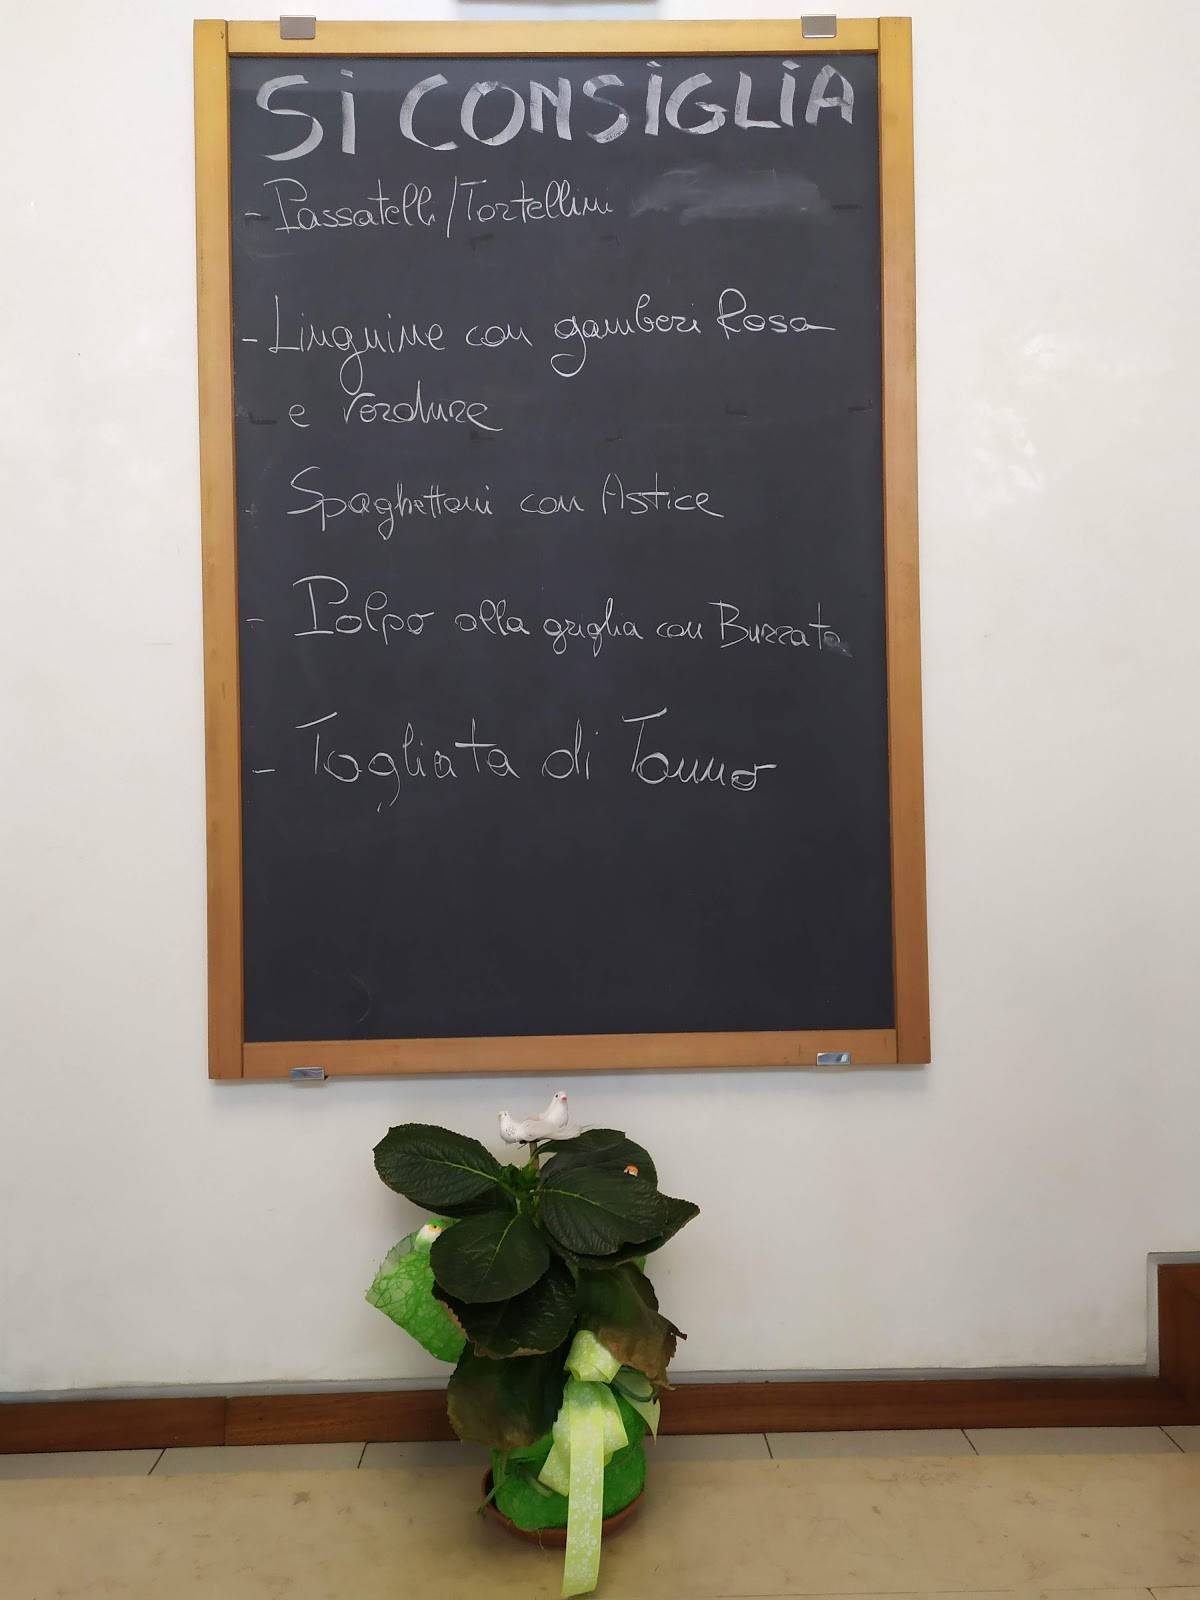 Si CONSiGLiA
- Passatelli/Tortellini
- Linguine con gamberi Rosa
e verdure
- Spaghettoni con Astice
- Polpo alla griglia con Burrata
- Tagliata di Tonno